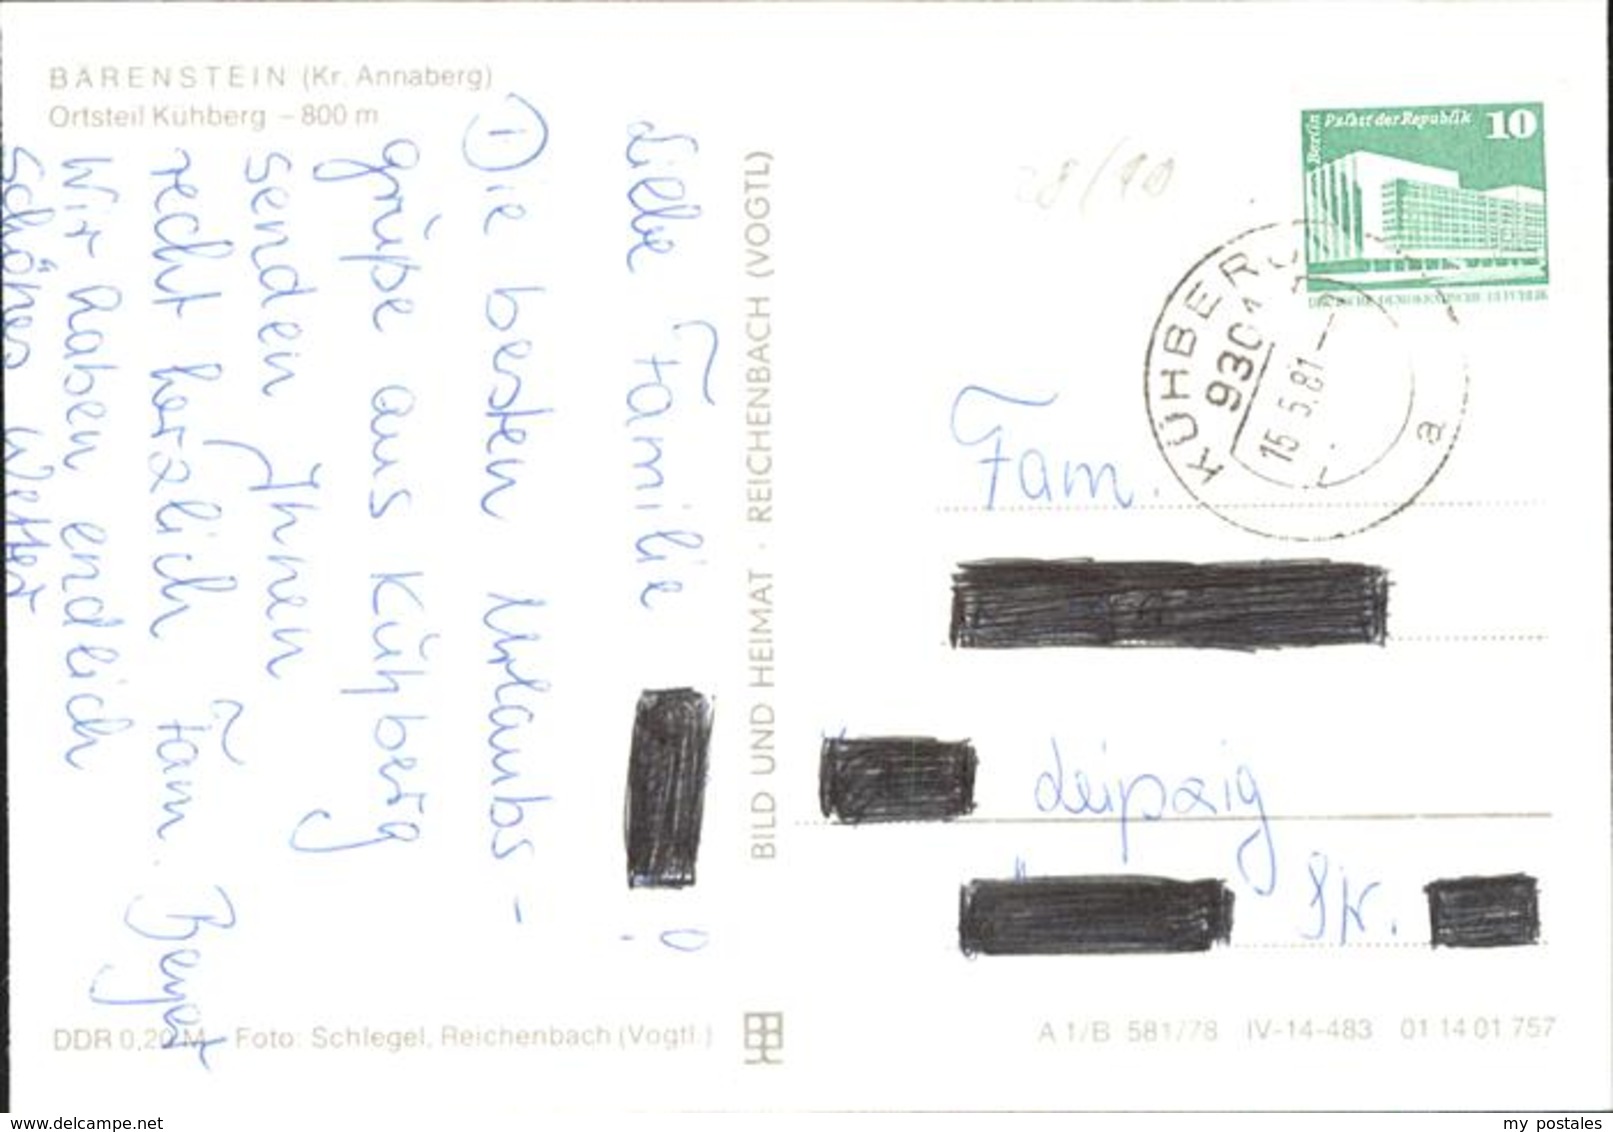 BÄRENSTEIN (Kr. Annaberg)
Ortsteil Kühberg – 800 m
Liebe Familie !
① Die besten Urlaubs-
grüße aus Kühberg
senden Ihnen
recht herzlich Fam. Beyer
Wir haben endlich
schönes Wetter
BILD UND HEIMAT · REICHENBACH (VOGTL)
28/10
Berlin Palast der Republik 10
DEUTSCHE DEMOKRATISCHE REPUBLIK
KÜHBERG
9301
15.5.81
a
Fam.
Leipzig
Str.
DDR 0,20 M Foto: Schlegel, Reichenbach (Vogtl.)
A 1/B 581/78 IV-14-483 01 14 01 757
www.delcampe.net
my_postales